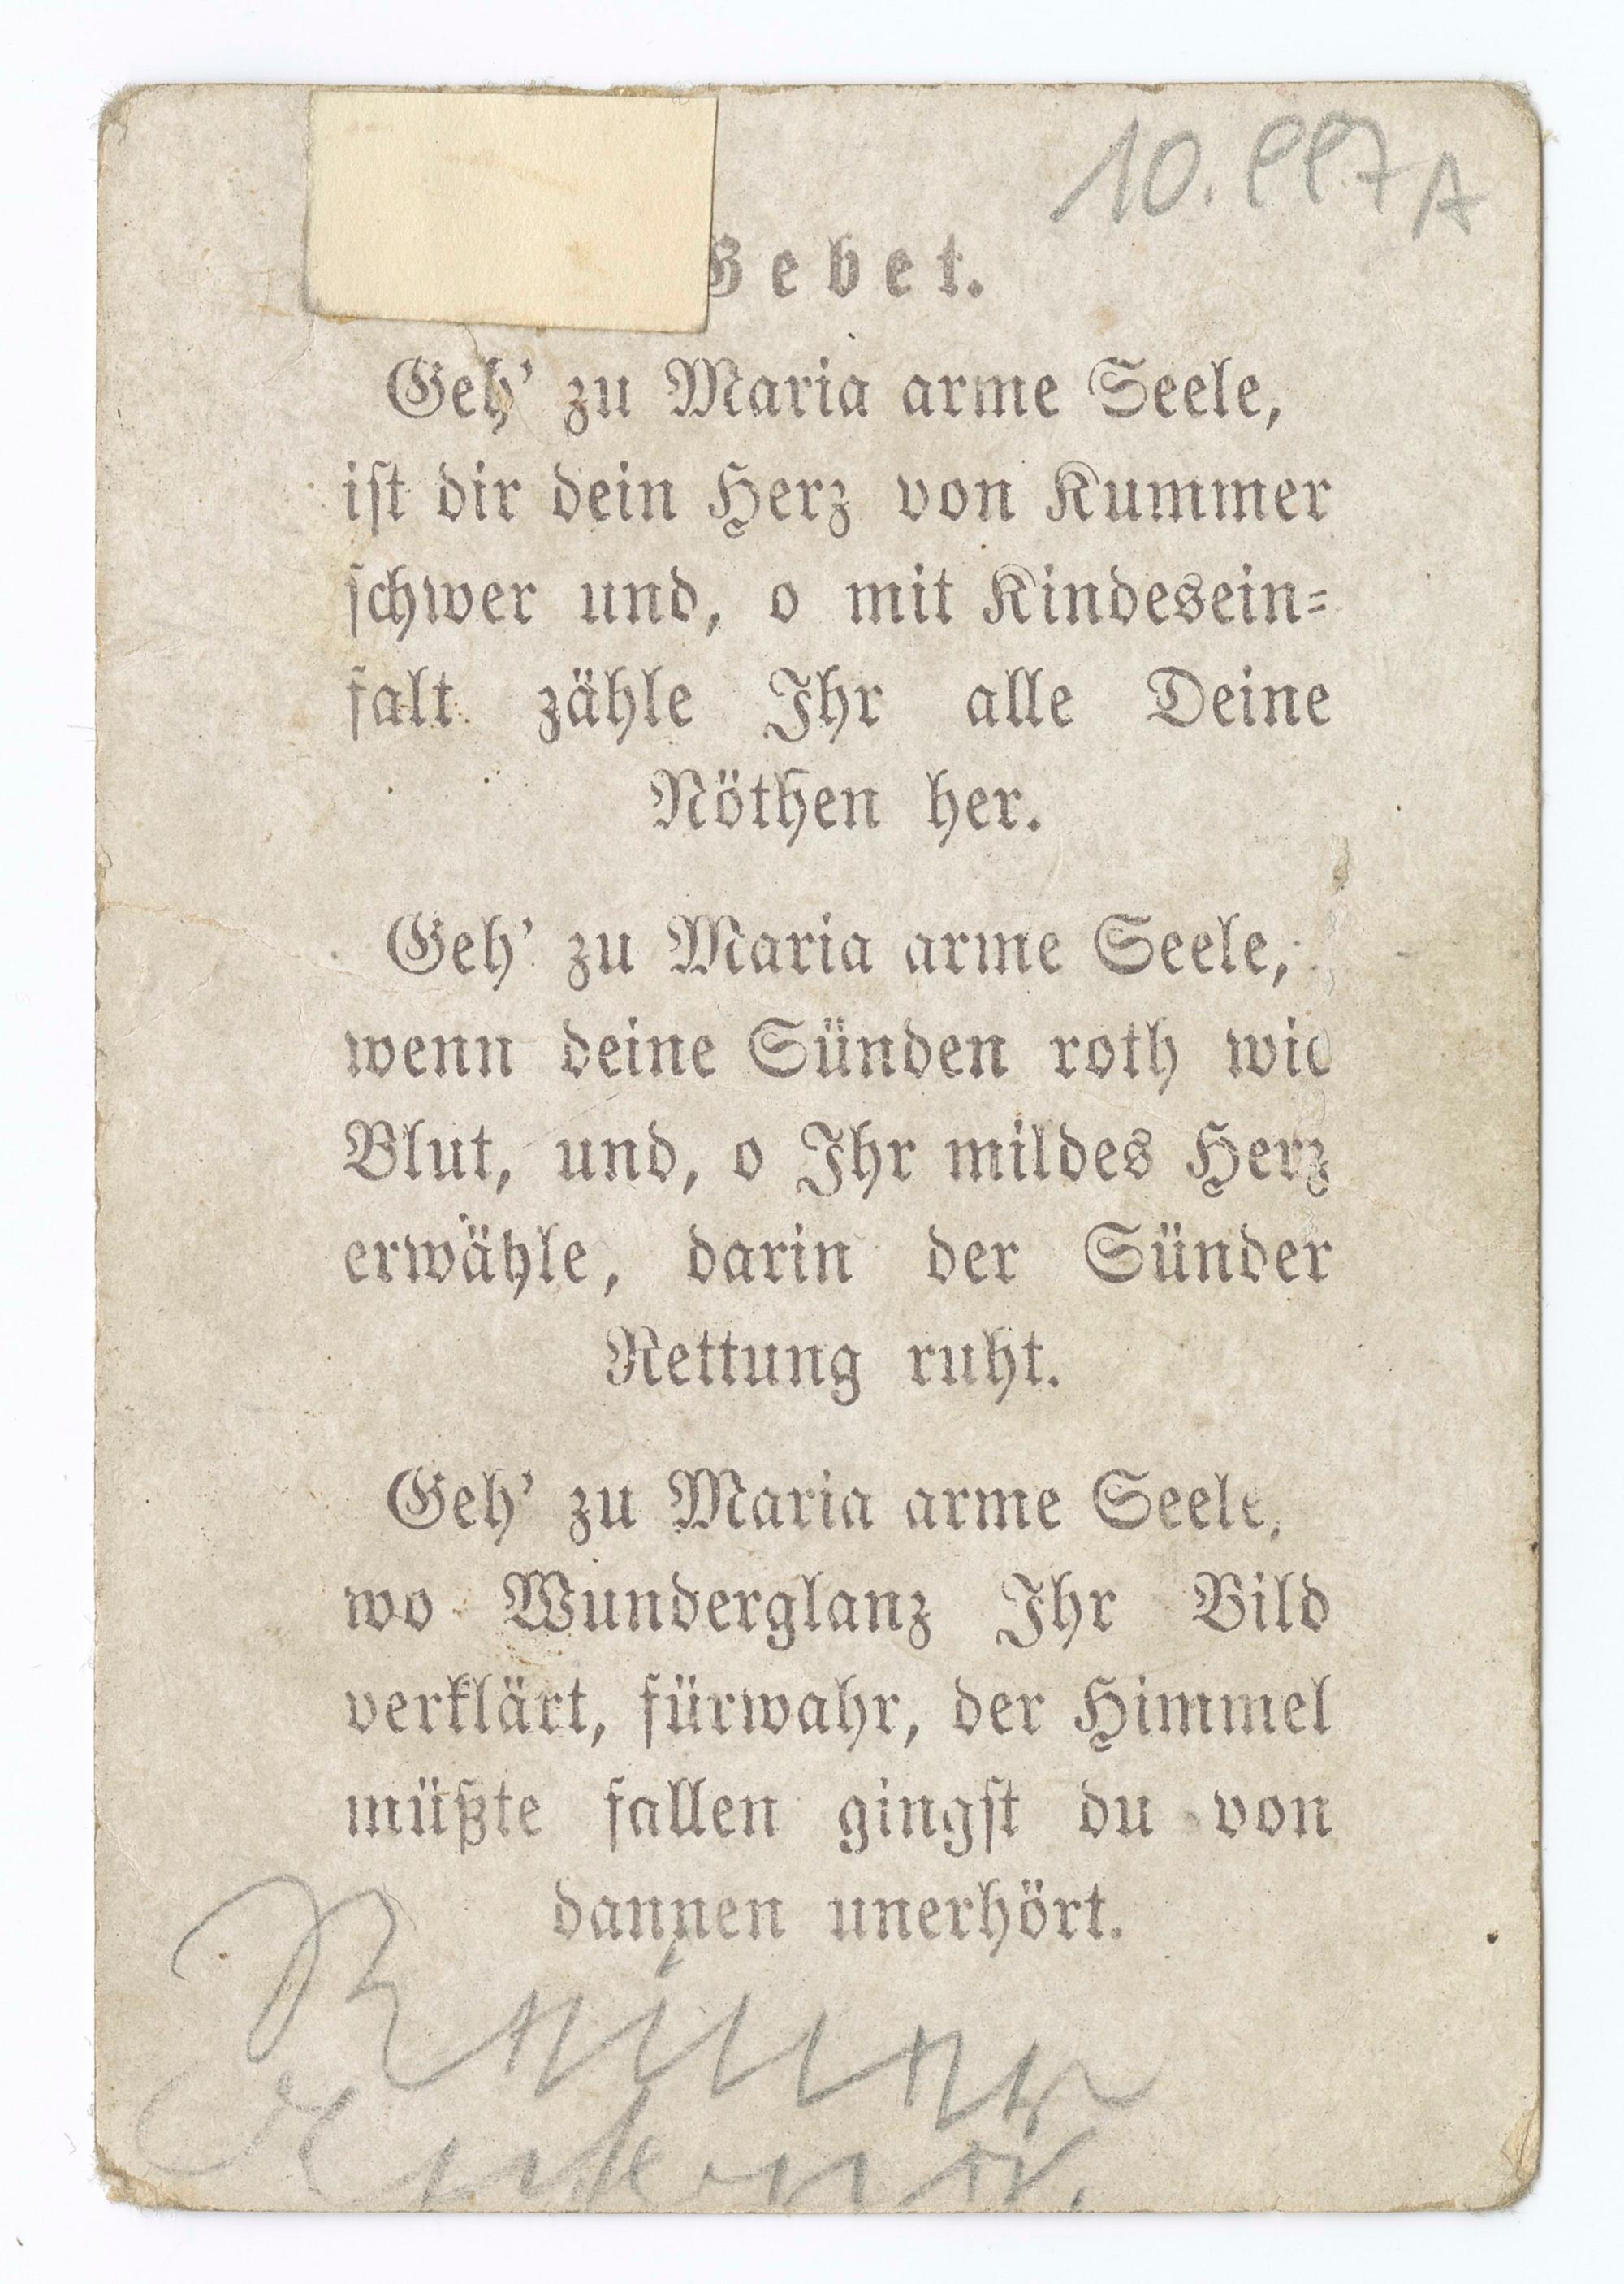 10.997 A
Gebet.
Geh' zu Maria arme Seele,
ist dir dein Herz von Kummer
schwer und, o mit Kindesein=
falt zähle Ihr alle Deine
Nöthen her.
Geh' zu Maria arme Seele,
wenn deine Sünden roth wie
Blut, und, o Ihr mildes Herz
erwähle, darin der Sünder
Rettung ruht.
Geh' zu Maria arme Seele,
wo Wunderglanz Ihr Bild
verklärt, fürwahr, der Himmel
müßte fallen gingst du von
dannen unerhört.